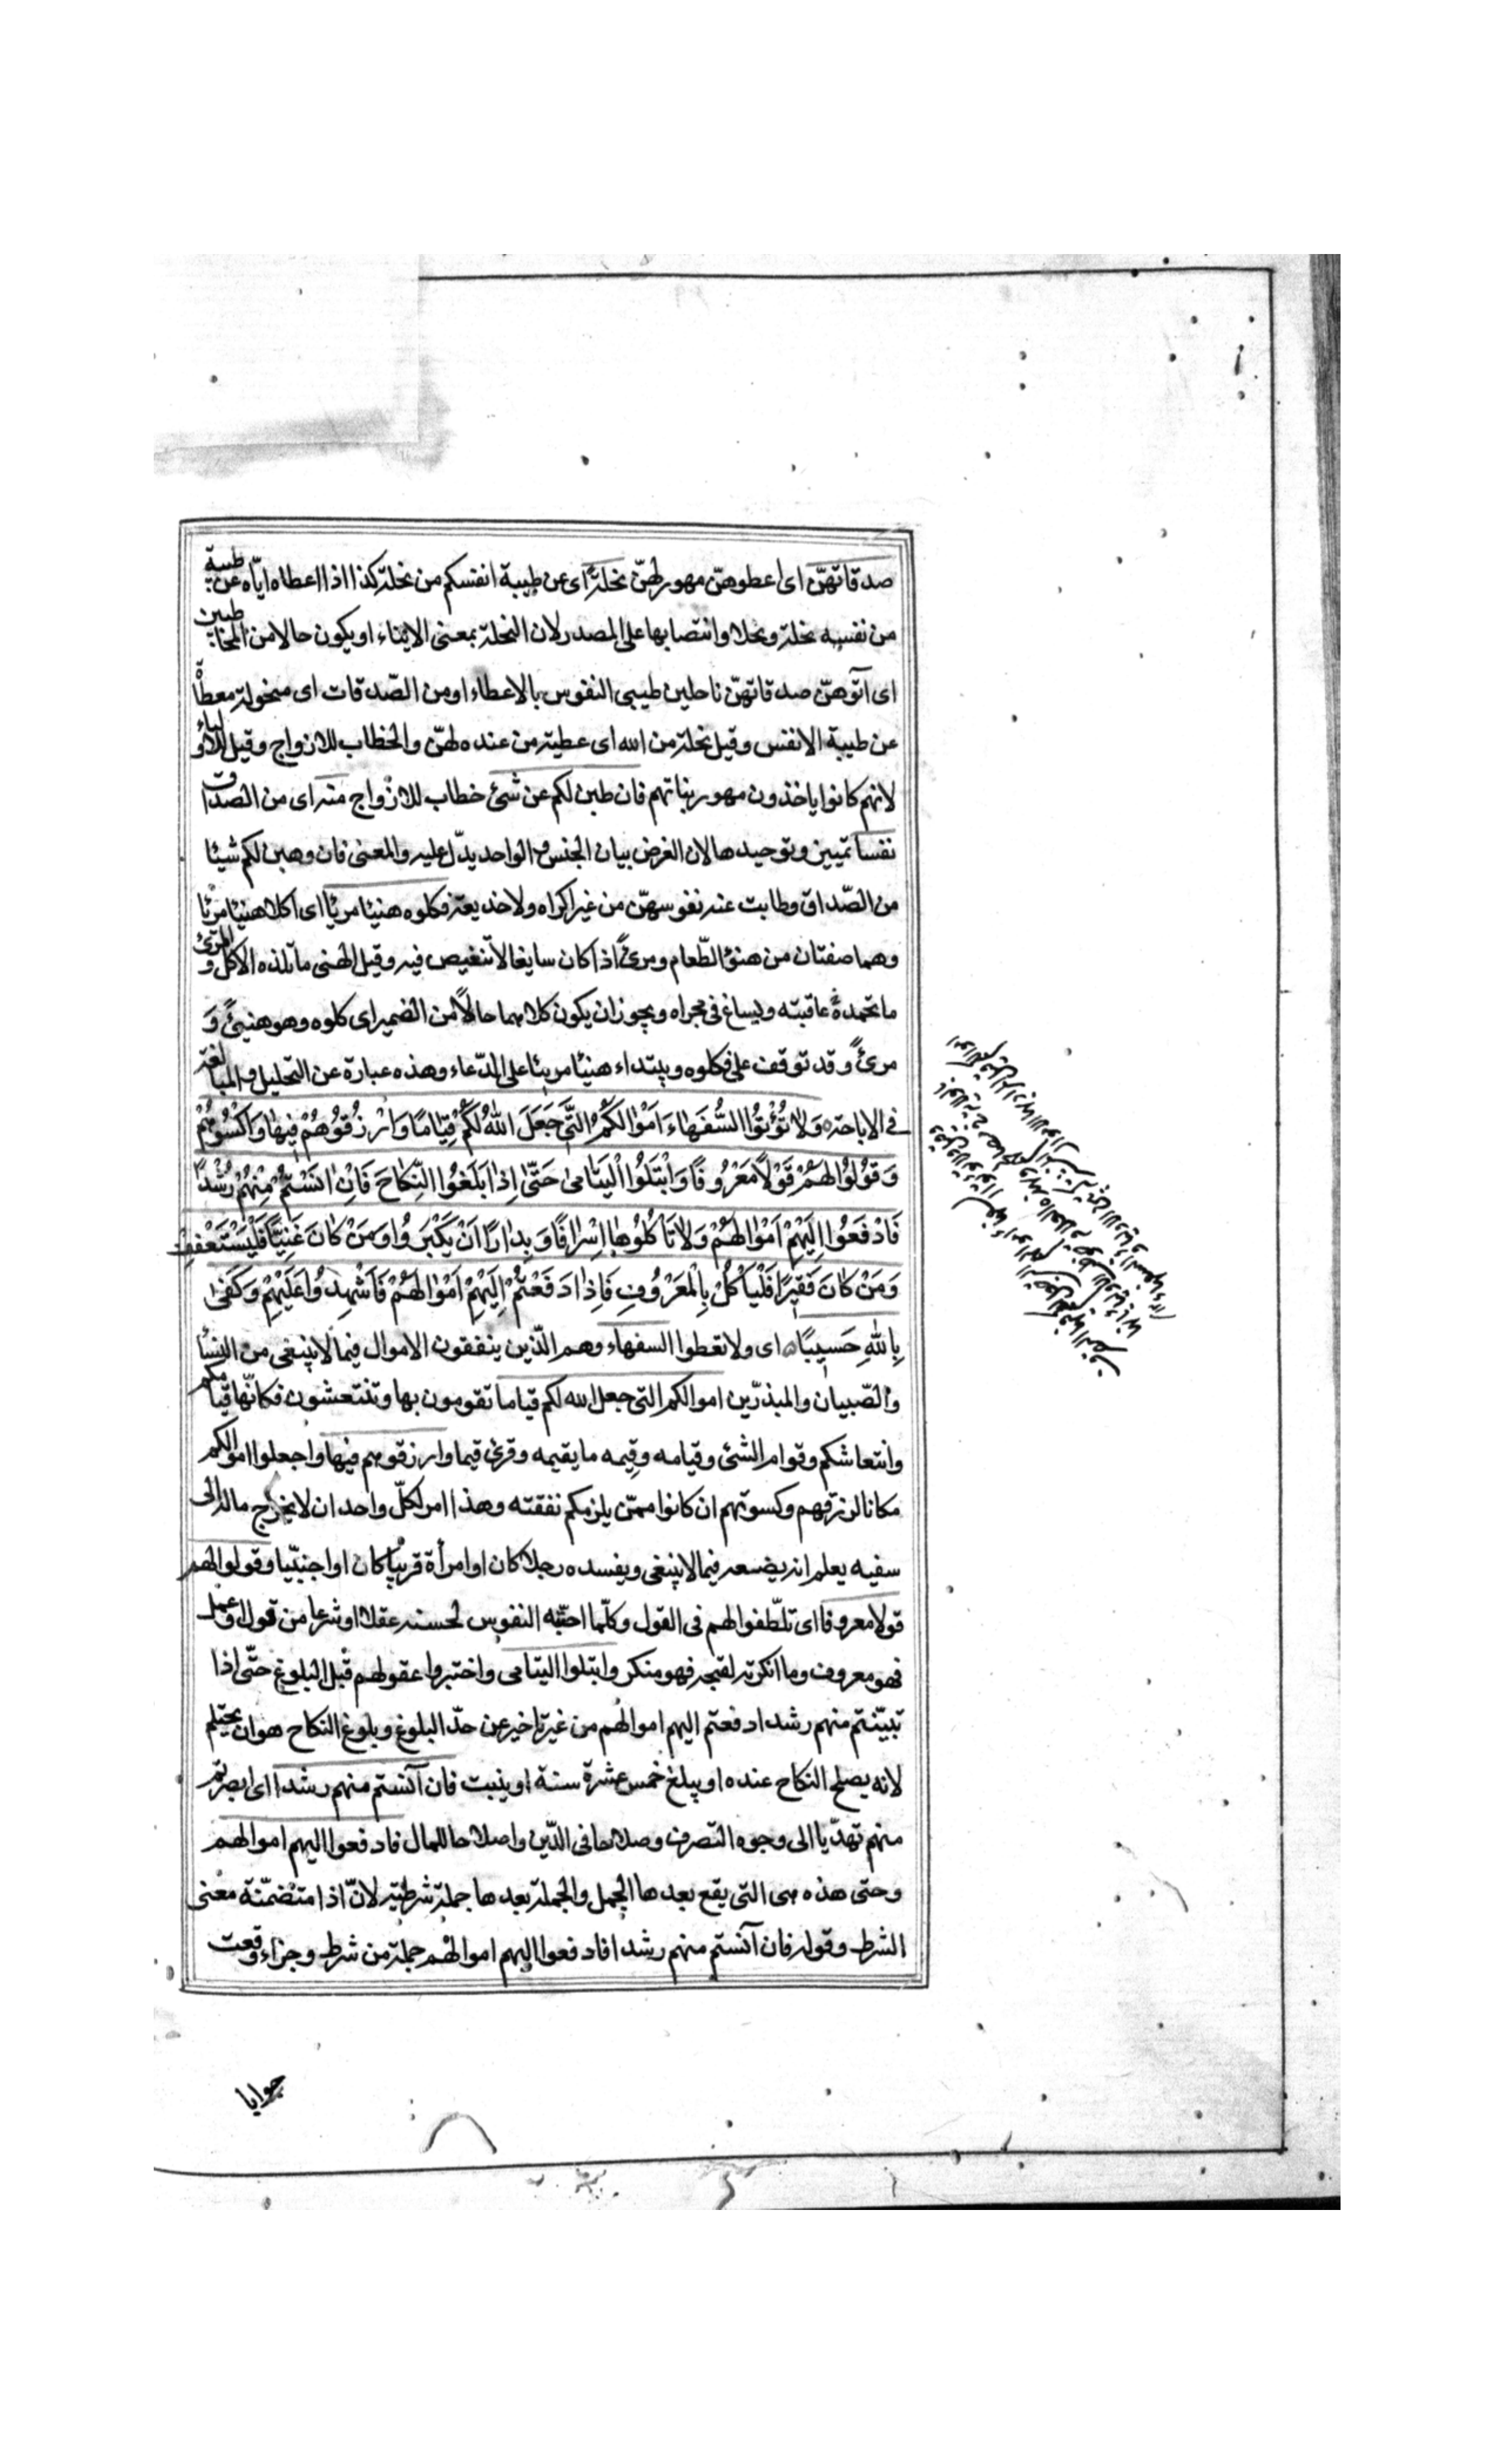 صدقاتهنّ اى اعطوهنّ مهورهنّ نحلةً اى عن طيبة انفسكم من نحلة كذا اذا اعطاه ايّاه عن طيبة
من نفسه نحلة ونحلا وانتصابها على المصدر لان النحلة بمعنى الايتاء او يكون حالا من المخاطبين
اى آتوهنّ صدقاتهنّ ناحلين طيبى النفوس بالاعطاء او من الصّدقات اى منحولة معطاة
عن طيبة الانفس وقيل نحلة من الله اى عطية من عنده لهنّ والخطاب للازواج وقيل للاولياء
لانهم كانوا ياخذون مهور بناتهم فان طبن لكم عن شئ خطاب للازواج منه اى من الصداق
نفسا تمييز وتوحيدها لان الغرض بيان الجنس والواحد يدّل عليه والمعنى فان وهبن لكم شيئا
من الصّداق وطابت عنه نفوسهنّ من غير اكراه ولا خديعة فكلوه هنيئا مريئا اى اكلا هنيئا مريئا
وهما صفتان من هنؤ الطّعام ومرئً اذا كان سايغا لا تنغيص فيه وقيل الهنى ما تلذه الاكل والمرئ
ما تحمده عاقبته ويساغ فى مجراه ويجوز ان يكون كلاهما حالاً من الضمير اى كلوه وهو هنيئً وَ
مرئً وقد توقف على فكلوه ويبتداء هنيئا مريئا على الدّعاء وهذه عبارة عن التحليل والمبالغة
فى الاباحة وَلاٰ تُؤْتُوا السُّفَهٰاءَ اَمْوٰالَكُمُ الَّتِى جَعَلَ اللهُ لَكُمْ قِيٰامًا وَارْزُقُوهُمْ فِيهٰا وَاكْسُوهُمْ
وَقُولُوا لَهُمْ قَوْلاً مَعْرُوفًا وَابْتَلُوا الْيَتٰامىٰ حَتّىٰ اِذٰا بَلَغُوا النِّكٰاحَ فَاِنْ اٰنَسْتُمْ مِنْهُمْ رُشْدًا
فَادْفَعُوا اِلَيْهِمْ اَمْوٰالَهُمْ وَلاٰ تَاْكُلُوهٰا اِسْرٰافًا وَبِدٰارًا اَنْ يَكْبَرُوا وَمَنْ كٰانَ غَنِيًّا فَلْيَسْتَعْفِفْ
وَمَنْ كٰانَ فَقِيرًا فَلْيَاْكُلْ بِالْمَعْرُوفِ فَاِذٰا دَفَعْتُمْ اِلَيْهِمْ اَمْوٰالَهُمْ فَاَشْهِدُوا عَلَيْهِمْ وَكَفىٰ
بِاللهِ حَسِيبًا اى ولا تعطوا السفهاء وهم الّذين ينفقون الاموال فيما لا ينبغى من النسأ
والصّبيان والمبذرّين اموالكم التى جعل الله لكم قياما تقومون بها وتنتعشون فكانّها قيامكم
وانتعاشكم وقوام الشئ وقيامه وقيمه ما يقيمه وقرئ قيما وارزقوهم فيها واجعلوا اموالكم
مكانا لرزقهم وكسوتهم ان كانوا ممّن يلزمكم نفقته وهذا امر لكلّ واحد ان لا يخرج ماله الى
سفيه يعلم انه يضعه فيما لا ينبغى ويفسده رجلا كان او امرأة قريبا كان او اجنبّيا وقولوا لهم
قولا معروفا اى تلّطفوا لهم فى القول وكلّما احبّه النفوس لحسنه عقلا او شرعا من قول او عمل
فهو معروف وما انكرته لقبحه فهو منكر وابتلوا اليتامى واختبروا عقولهم قبل البلوغ حتّى اذا
تبيّنتم منهم رشدا دفعتم اليهم اموالهم من غير تاخير عن حدّ البلوغ وبلوغ النكاح هو ان يحتلم
لانه يصلح النكاح عنده او يبلغ خمس عشرة سنة او ينبت فان آنستم منهم رشدا اى ابصرتم
منهم تهدّيا الى وجوه التصرف وصلاحا فى الدّين واصلاحا للمال فادفعوا اليهم اموالهم
وحتى هذه هى التى يقع بعدها الجمل والجملة بعدها جملة شرطية لانّ اذا متضمّنة معنى
الشرط وقوله فان آنستم منهم رشدا فادفعوا اليهم اموالهم جملة من شرط وجزاء وقعت
جوابا